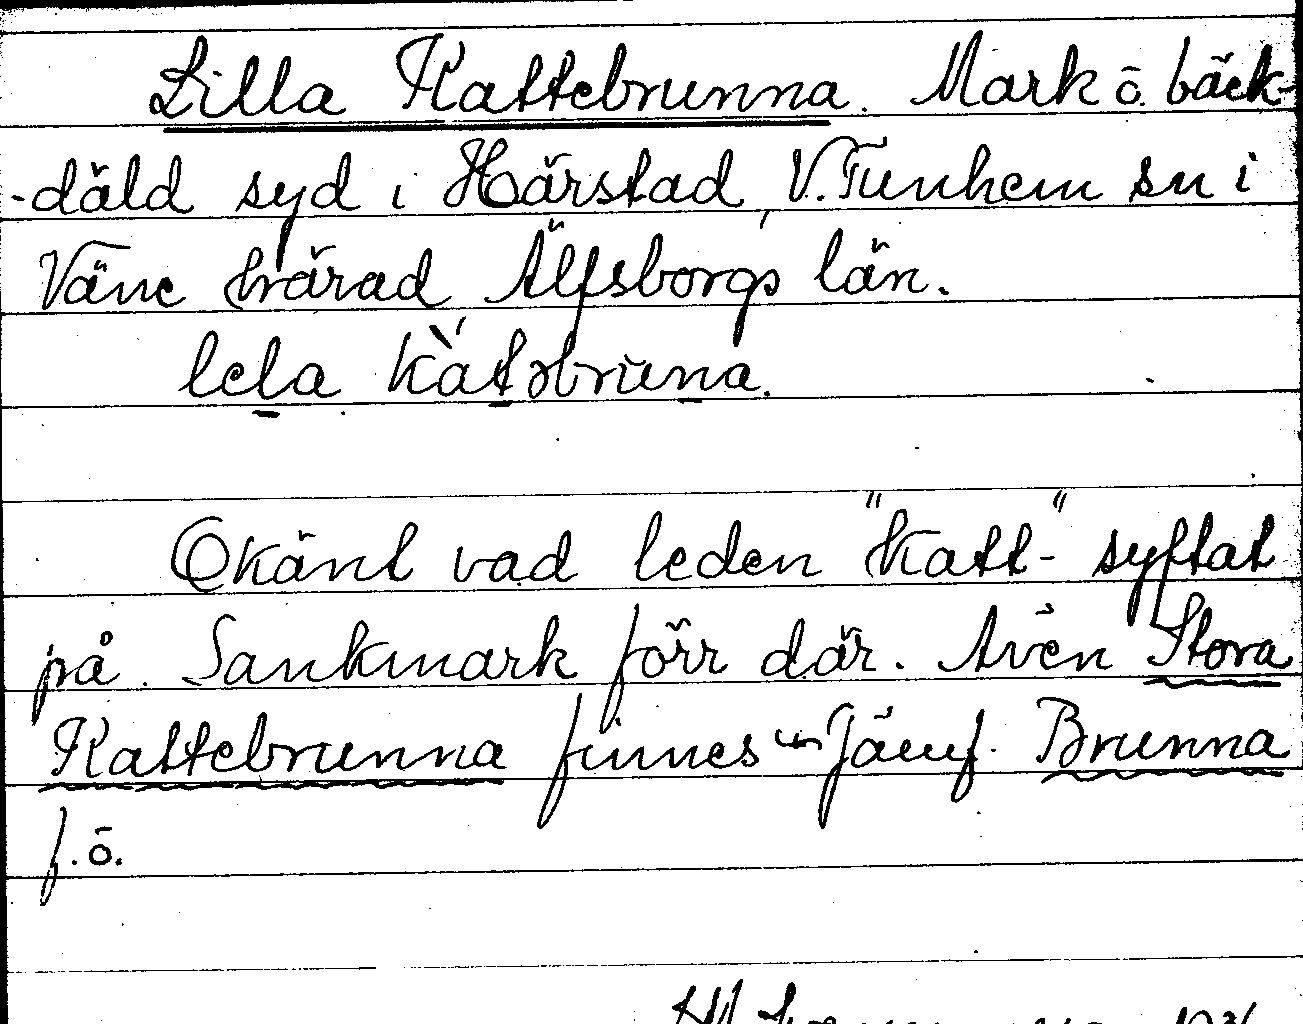 Lilla Kattebrunna. Mark ō. bäck-
-däld syd i Härstad, V. Tunhem sn i
Väne härad Älfsborgs län.
lela kàtəbruna.
Okänt vad leden "Katt-" syftat
på. Sankmark förr där. Även Stora
Kattebrunna finnes Jämf. Brunna
f. ō.